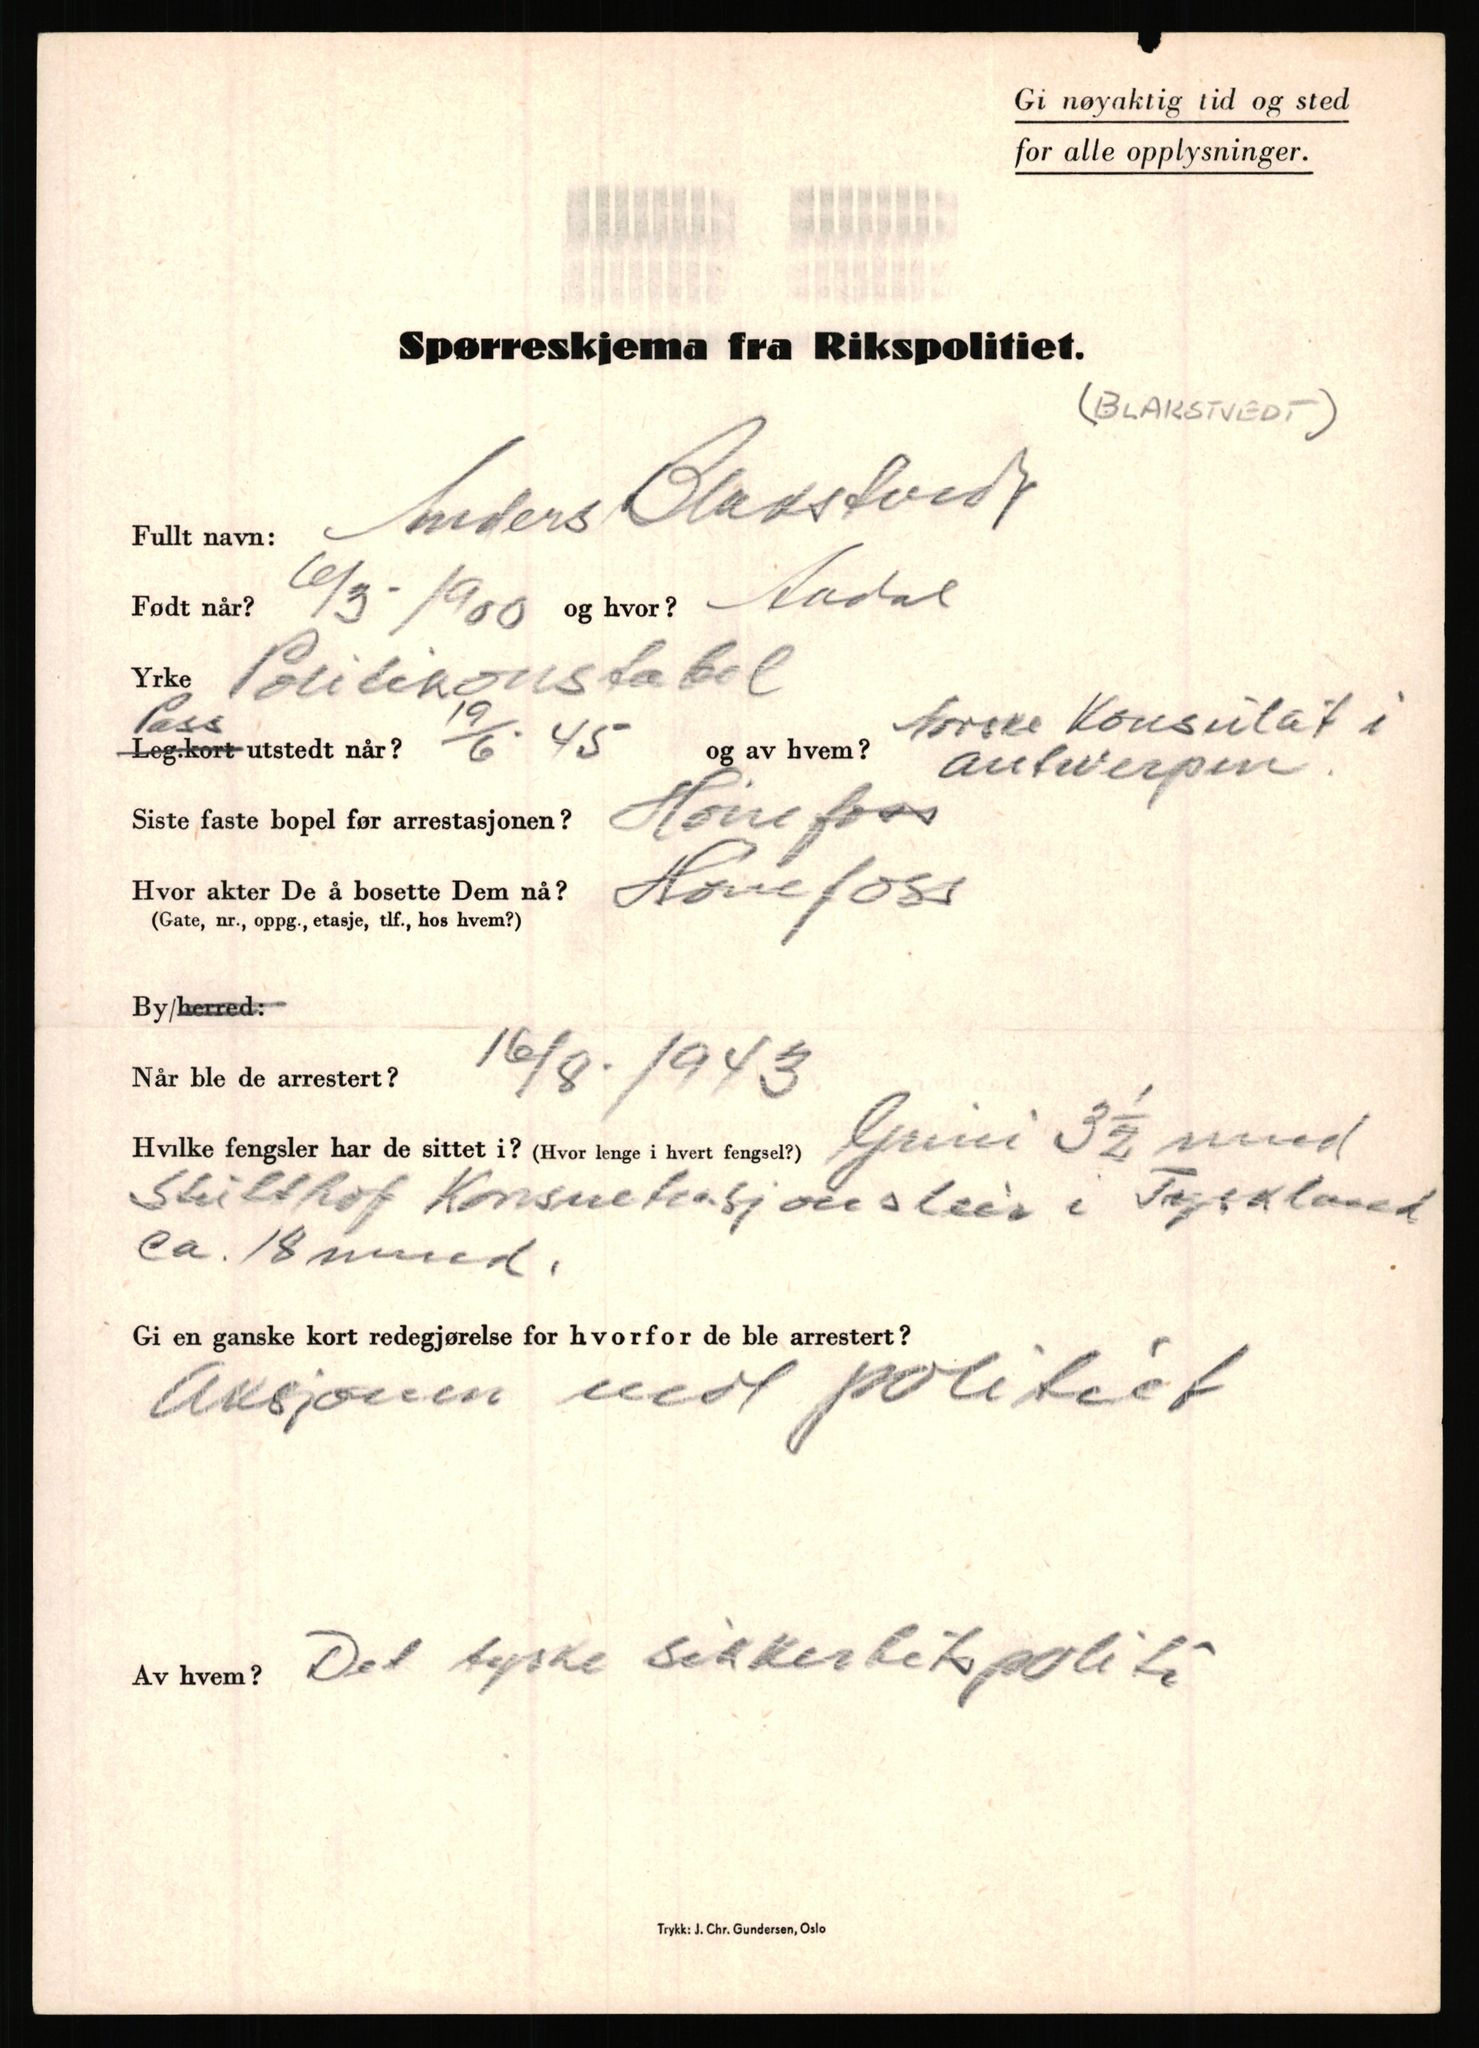 Gi nøyaktig tid og sted
for alle opplysninger.
Spørreskjema fra Rikspolitiet.
(BLAKSTVEDT)
Fullt navn: Anders Blakstvedt
Født når? 6/3-1900 og hvor? Aadal
Yrke Politikonstabel
Pass
Leg.kort utstedt når? 19/6-45 og av hvem? Norske Konsulat i
Antwerpen.
Siste faste bopel før arrestasjonen? Hønefoss
Hvor akter De å bosette Dem nå? Hønefoss
(Gate, nr., oppg., etasje, tlf., hos hvem?)
By/herred:
Når ble de arrestert? 16/8-1943
Hvilke fengsler har de sittet i? (Hvor lenge i hvert fengsel?) Grini 3 1/2 mnd
Stutthof Konsentrasjonsleir i Tyskland
ca. 18 mned.
Gi en ganske kort redegjørelse for hvorfor de ble arrestert?
Aksjonen mot politiet
Av hvem? Det tyske sikkerhetspoliti
Trykk: J. Chr. Gundersen, Oslo